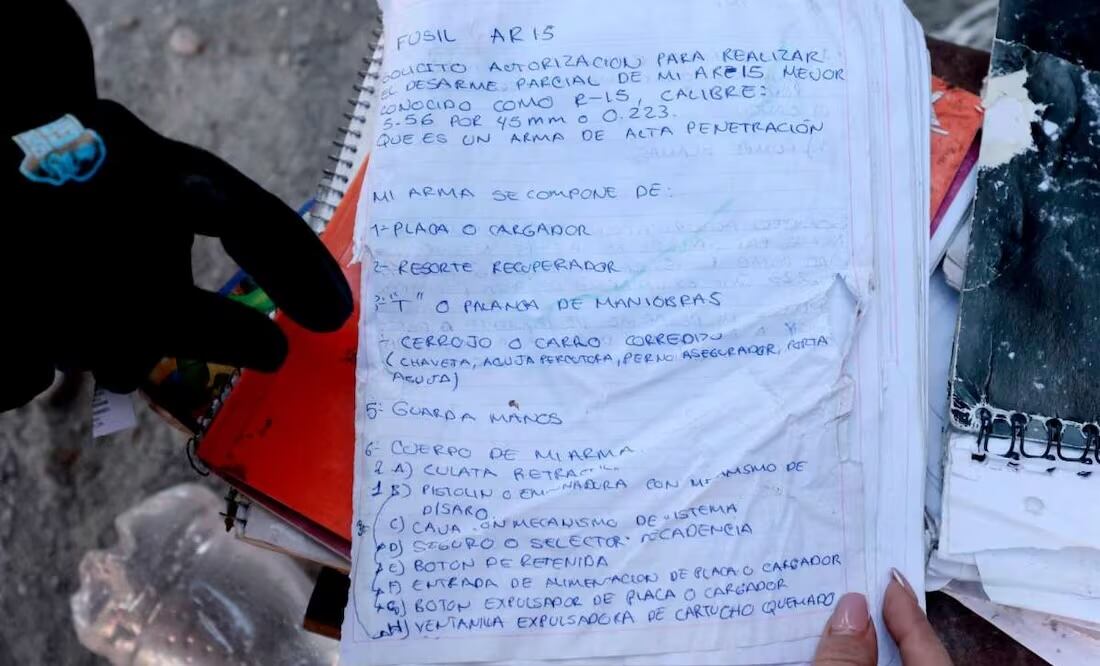 FUSIL AR15
SOLICITO AUTORIZACION PARA REALIZAR
EL DESARME PARCIAL DE MI AR15 MEJOR
CONOCIDO COMO R-15, CALIBRE:
5.56 POR 45mm o 0.223.
QUE ES UN ARMA DE ALTA PENETRACIÓN
MI ARMA SE COMPONE DE:
1- PLACA O CARGADOR
2- RESORTE RECUPERADOR
3- "T" O PALANCA DE MANIOBRAS
- CERROJO O CARRO CORREDIZO
(CHAVETA, AGUJA PERCUTORA, PERNO ASEGURADOR, PORTA
AGUJA)
5- GUARDA MANOS
6- CUERPO DE MI ARMA
A) CULATA RETRACTIL
B) PISTOLIN O CON MECANISMO DE
DISARO
C) CAJA CON MECANISMO DE SISTEMA
D) SEGURO O SELECTOR CADENCIA
E) BOTON DE RETENIDA
F) ENTRADA DE ALIMENTACION DE PLACA O CARGADOR
G) BOTON EXPULSADOR DE PLACA O CARGADOR
H) VENTANILLA EXPULSADORA DE CARTUCHO QUEMADO